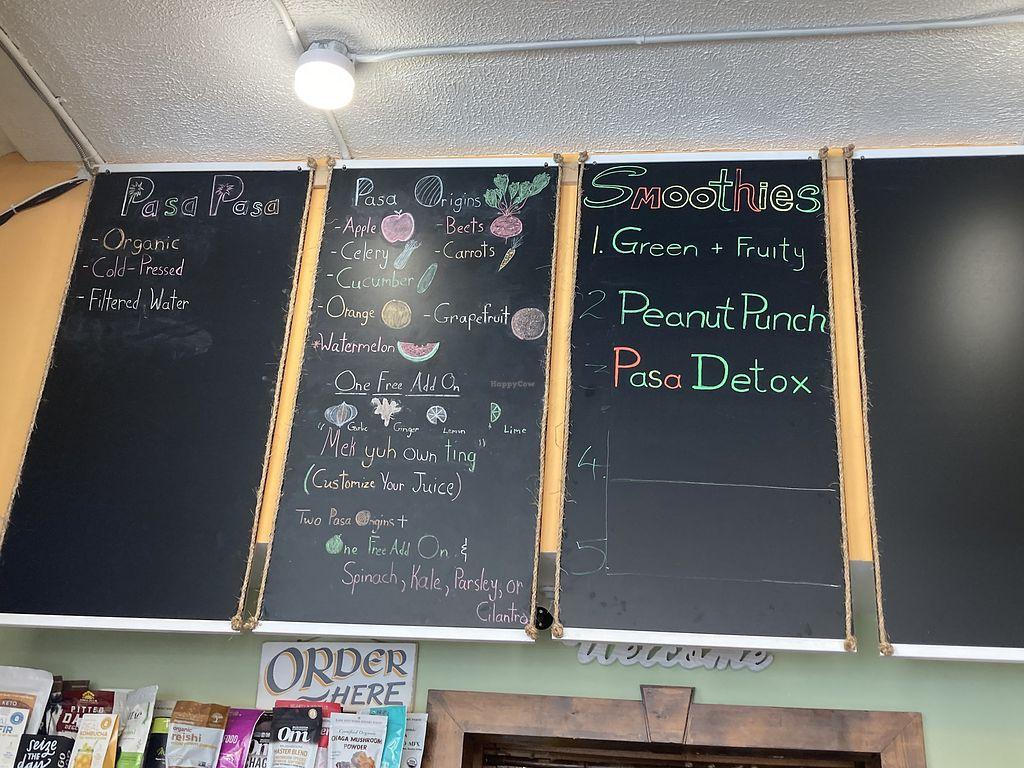 Pasa Pasa
- Organic
- Cold-Pressed
- Filtered Water
Pasa Origins
- Apple - Beets
- Celery - Carrots
- Cucumber
- Orange - Grapefruit
*Watermelon
One Free Add On
Garlic Ginger Lemon Lime
"Mek yuh own ting"
(Customize Your Juice)
Two Pasa Origins +
One Free Add On &
Spinach, Kale, Parsley, or
Cilantro
Smoothies
1. Green + Fruity
2 Peanut Punch
3 Pasa Detox
4.
5.
HappyCow
ORDER
HERE
Welcome
KETO
PITTED
seize
THE
day
KOMBUCHA
organic
reishi
Om
MASTER BLEND
CHAGA MUSHROOM
POWDER